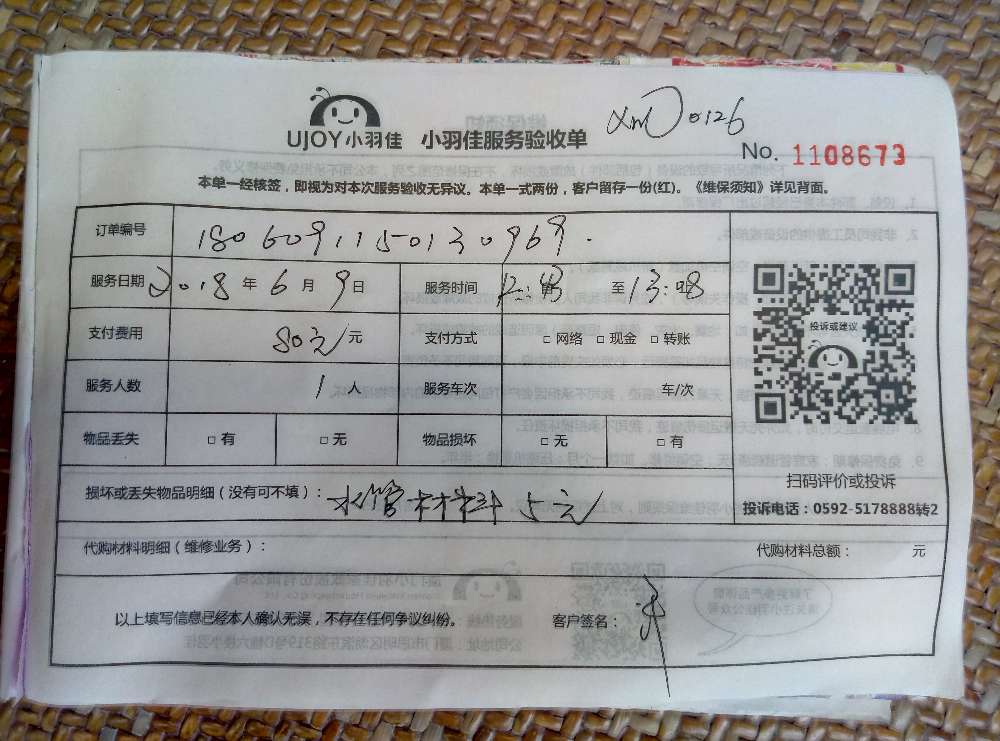 UJOY小羽佳 小羽佳服务验收单
XM 0126
No. 1108673
本单一经核签，即视为对本次服务验收无异议。本单一式两份，客户留存一份(红)。《维保须知》详见背面。
订单编号 180609115013 0969.
服务日期 2018 年 6 月 9 日 服务时间 至 13:08
支付费用 80元 元 支付方式 □ 网络 □ 现金 □ 转账
服务人数 1 人 服务车次 车/次
物品丢失 □ 有 □ 无 物品损坏 □ 无 □ 有
投诉或建议
扫码评价或投诉
投诉电话：0592-5178888转2
损坏或丢失物品明细（没有可不填）：水管材料 5元
代购材料明细（维修业务）： 代购材料总额： 元
以上填写信息已经本人确认无误，不存在任何争议纠纷。 客户签名：